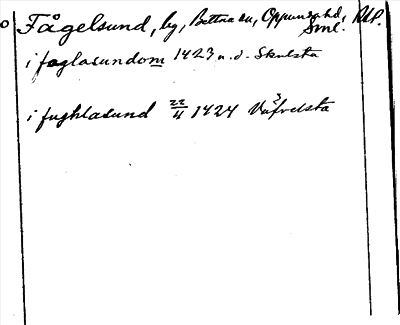 Fågelsund, by, Bettna sn, Oppunda hd, Sml. RAP.
i foglasundom 1423 u.d. Skulsta
i fughlasund 22/4 1424 Vä frelsta